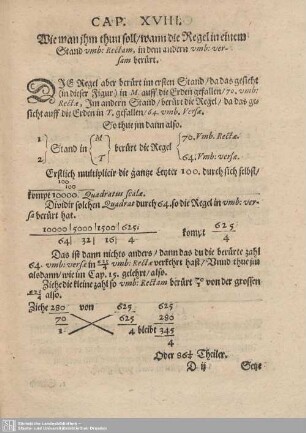 CAP. XVIII.
Wie man jhm thun soll/ wann die Regel in einem
Stand vmb: Rectam, in dem andern vmb: ver-
sam berürt.
DIe Regel aber berürt im ersten Stand/ da das gesicht
(in dieser Figur) in M. auff die Erden gefallen/ 70. vmb:
Rectæ, Im andern Stand/ berürt die Regel/ da das ge-
sicht auff die Erden in T. gefallen/ 64. vmb: Versæ.
So thue jm dann also.
1 M 70. Vmb. Rectæ.
Stand in berürt die Regel
2 T 64. Vmb: versæ.
Erstlich multiplicir die gantze Leyter 100. durch sich selbst/
100
100
kompt 10000. Quadratus scalæ.
Dividir solchen Quadrat durch 64. so die Regel in vmb: ver-
sæ berürt hat.
10000 | 5000 | 2500 | 625 |
64 | 32 | 16 | 4
kompt 625
4
Das ist dann nichts anders/ dann das du die berürte zahl
64. vmb: versæ in 625/4 vmb: Rectæ verkehrt hast/ Vnnd thue jm
alsdann/ wie im Cap. 15. gelehrt/ also.
Ziehe die kleine zahl so vmb: Rectam berürt 70/1 von der grossen
625/4 also.
Ziehe 280 von 625 625
70 625 280
1 4 bleibt 345
4
Oder 86 1/4 Theiler.
D ij Setze
Sächsische Landesbibliothek -
Staats- und Universitätsbibliothek Dresden